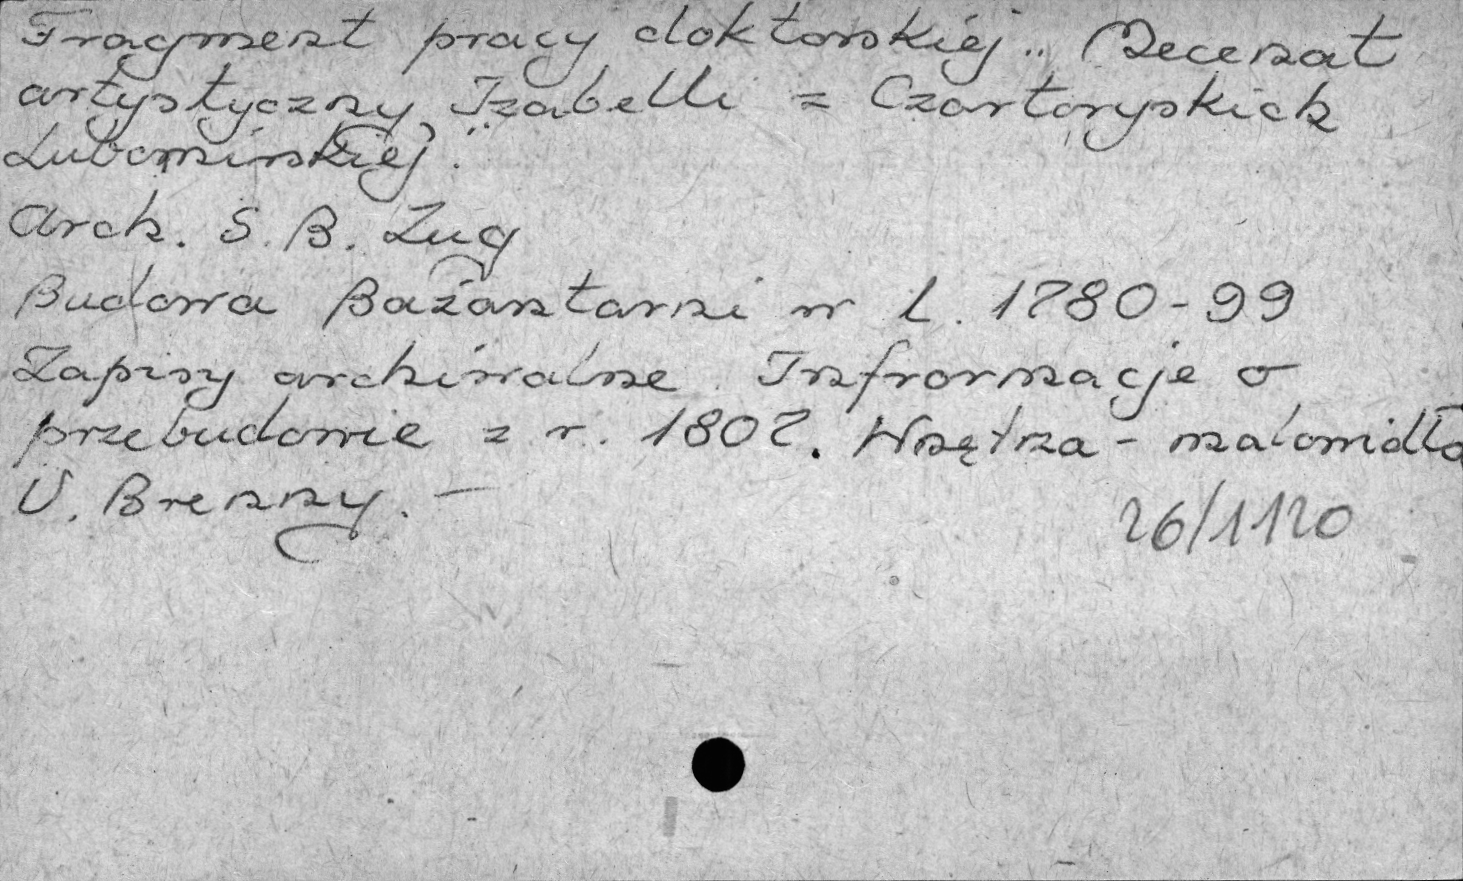 Fragment pracy doktorskiej „Mecenat
artystyczny Izabelli z Czartoryskich
Lubomirskiej."
Arch. S. B. Zug
Budowa Bażantarni w l. 1780-99
Zapisy archiwalne. Informacje o
przebudowie z r. 1802. Wnętrza - malowidła
V. Brenny. -
26/1120